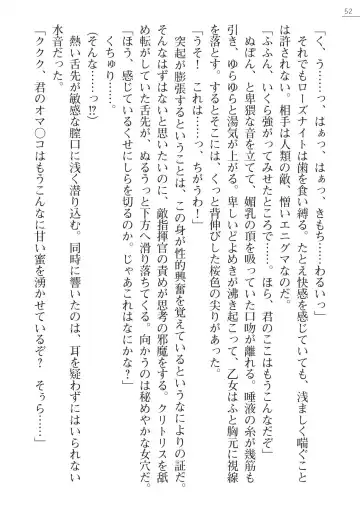 52
「く、う……っ、はぁっ、はぁっ、きもち……わるいっ」
それでもローズナイトは歯を食い縛る。たとえ快感を感じていても、浅ましく喘ぐこと
は許されない。相手は人類の敵、憎いエニグマなのだ。
「ふふん、いくら強がってみせたところで……。ほら、君のここはもうこんなだぞ」
ぬぽん、と卑猥な音を立てて、媚乳の頂を吸っていた口吻が離れる。唾液の糸が幾筋も
引き、ゆらゆらと湯気が上がる。卑しいどよめきが沸き起こって、乙女はふと胸元に視線
を落とす。するとそこには、くっと背伸びした桜色の尖りがあった。
「うそ！　これは……っ、ちがうわ！」
突起が膨張するということは、この身が性的興奮を覚えているというなによりの証だ。
そんなはずはないと思いたいのに、敵指揮官の責めが思考の邪魔をする。クリトリスを舐
め転がしていた舌先が、ぬるうっと下方へ滑り落ちてくる。向かうのは秘めやかな女穴だ。
「ほう、感じているくせにしらを切るのか。じゃあこれはなにかな？」
くちゅり……っ。
(そんな……っ!!)
熱い舌先が敏感な膣口に浅く潜り込む。同時に響いたのは、耳を疑わずにはいられない
水音だった。
「ククク、君のオマ〇コはもうこんなに甘い蜜を湧かせているぞ？　そぅら……」